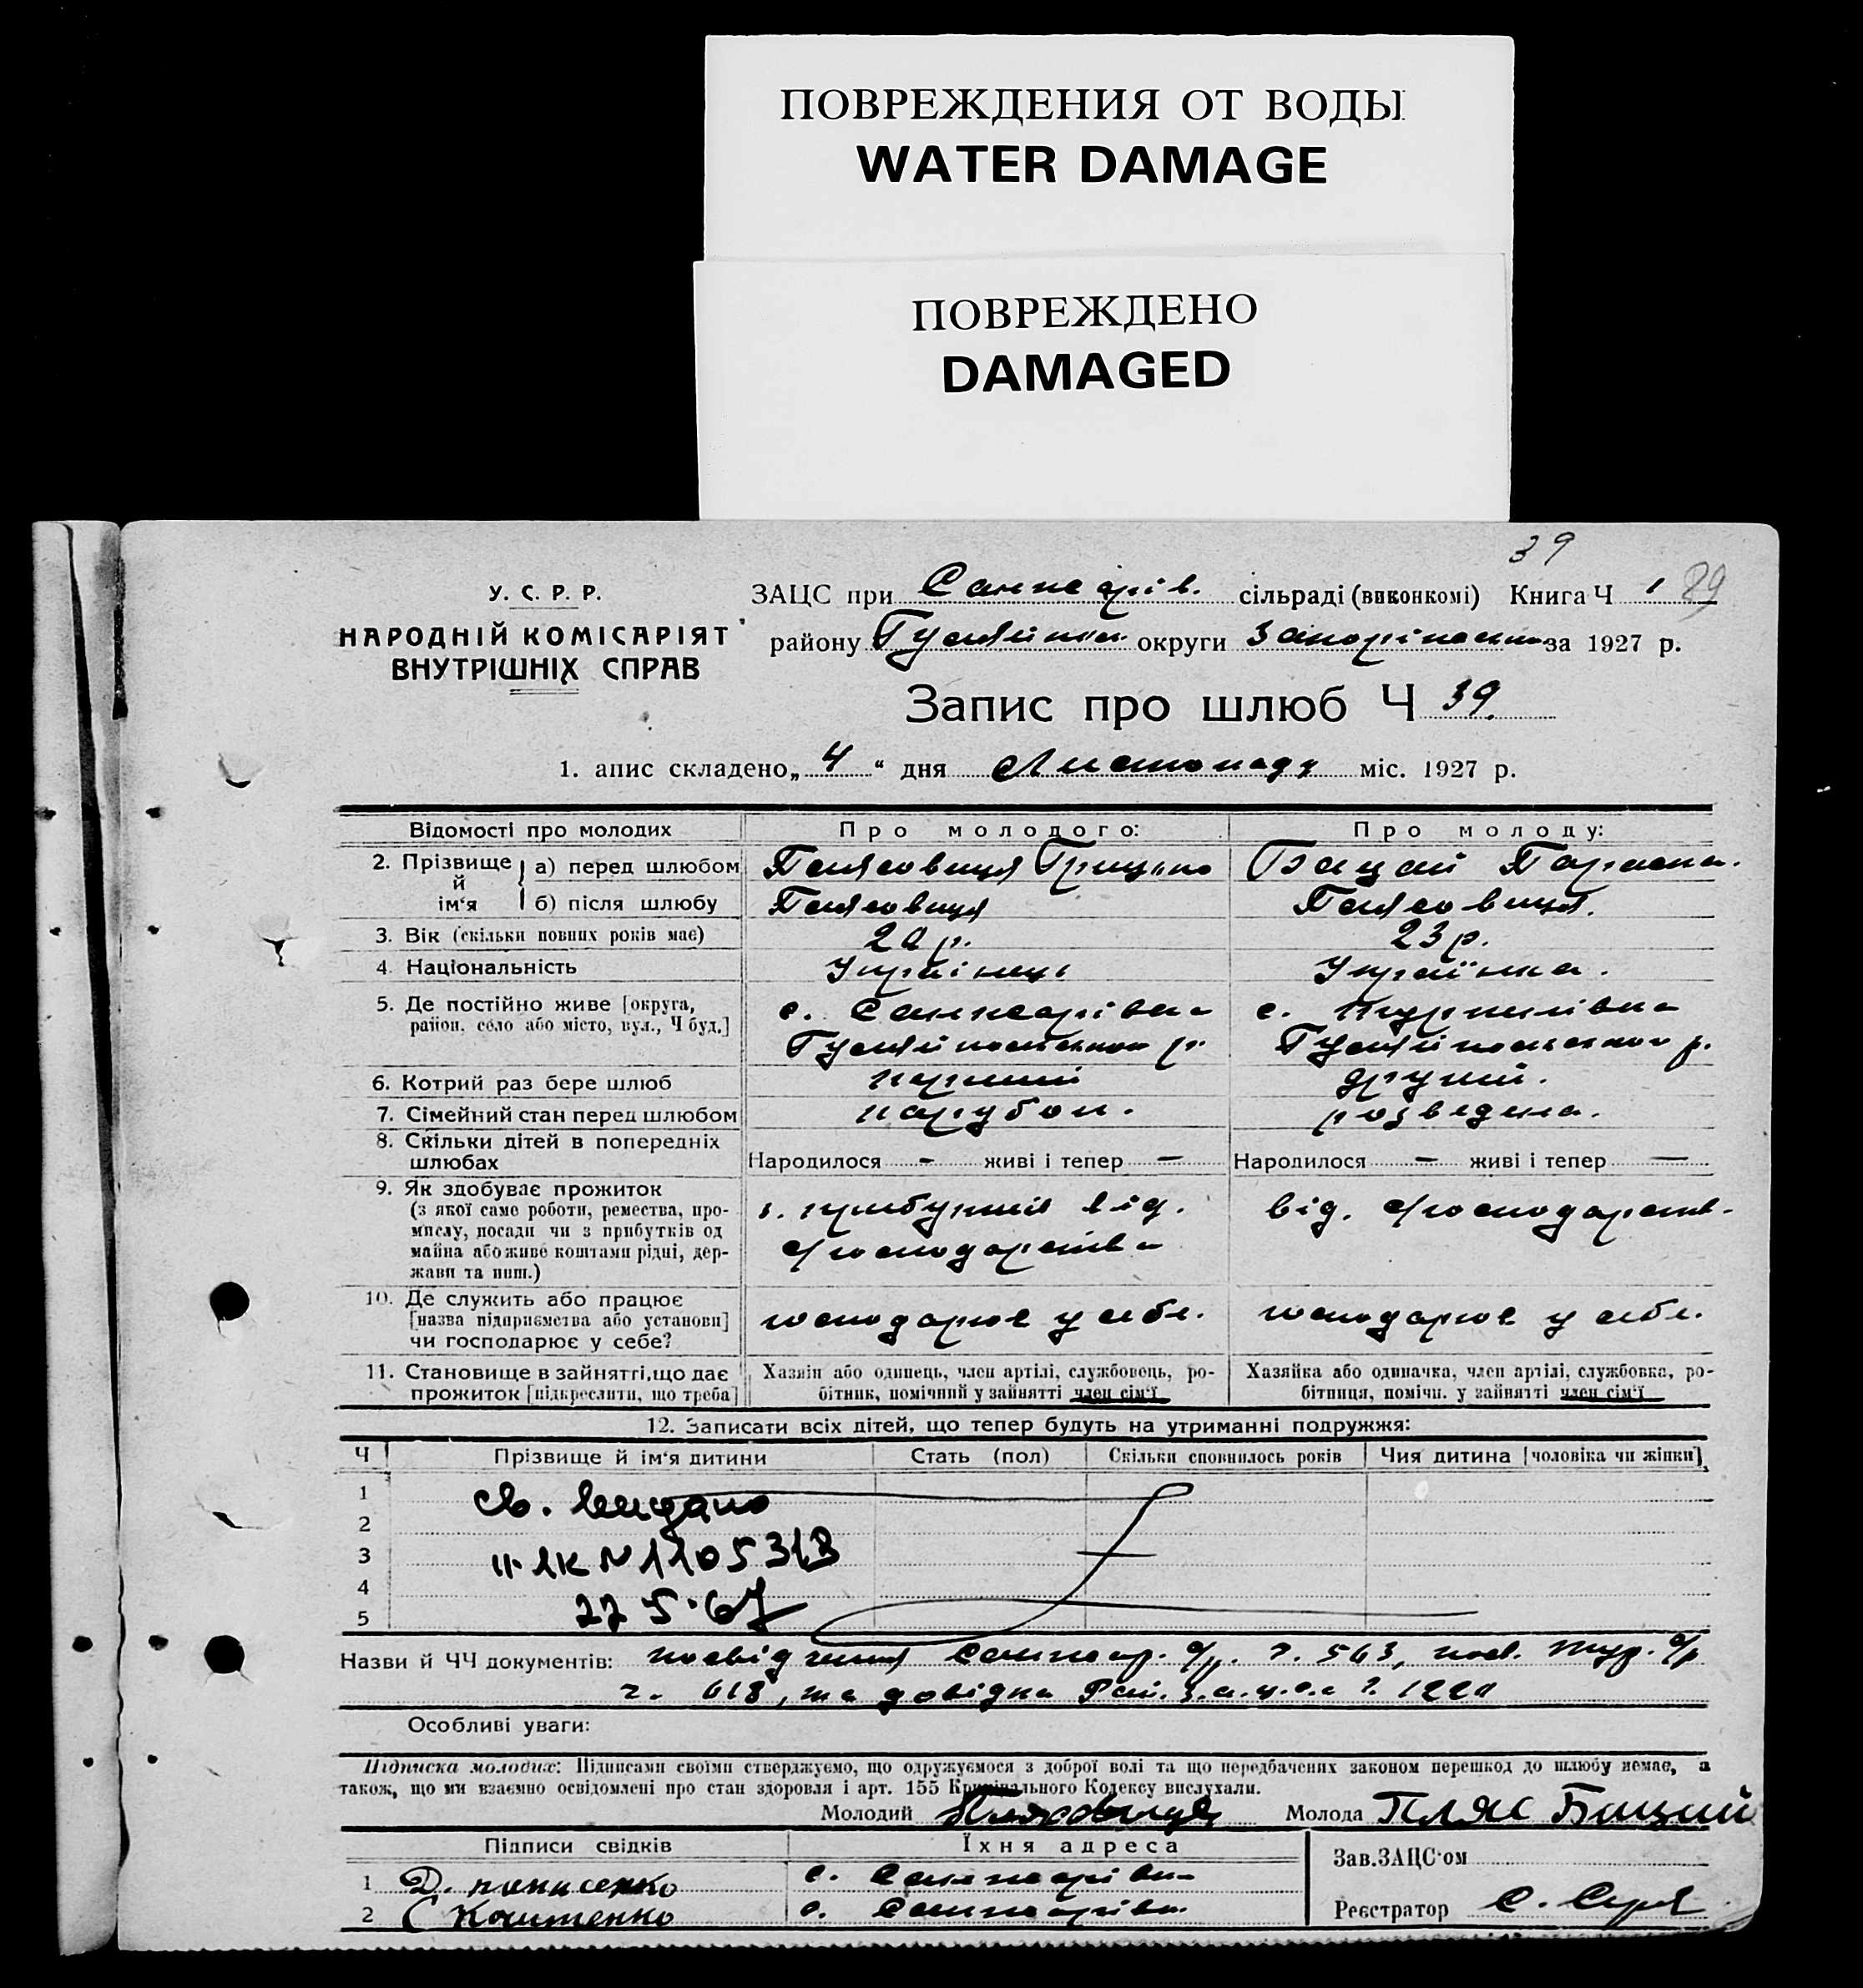 ПОВРЕЖДЕНИЯ ОТ ВОДЫ
WATER DAMAGE
ПОВРЕЖДЕНО
DAMAGED
39
У. С. Р. Р.
НАРОДНІЙ КОМІСАРІЯТ
ВНУТРІШНІХ СПРАВ
ЗАЦС при Санжарів. сільраді (виконкомі) Книга Ч 1 89
району Гуляйпол. округи Запоріжськ за 1927 р.
Запис про шлюб Ч 39.
1. апис складено „4“ дня Листопаду міс. 1927 р.
Відомості про молодих Про молодого: Про молоду:
2. Прізвище й ім‘я а) перед шлюбом Плясовиця Грицько Бацай Параска.
б) після шлюбу Плясовиця Плясовиця.
3. Вік (скільки повних років має) р. 23 р.
4. Національність Українець Українка.
5. Де постійно живе [округа, район, село або місто, вул., Ч буд.] с. Санжарівка с.
Гуляйпольського р. Гуляйпольського р.
6. Котрий раз бере шлюб перший другий.
7. Сімейний стан перед шлюбом парубок. розведена.
8. Скільки дітей в попередніх шлюбах Народилося – живі і тепер – Народилося – живі і тепер –
9. Як здобуває прожиток
(з якої саме роботи, ремества, промислу, посади чи з прибутків од майна або живе коштами рідні, держави та инш.)
з. прибутків від. господарства
від. господарств.
10. Де служить або працює
[назва підприємства або установи]
чи господарює у себе?
господарює у себе. господарює у себе.
11. Становище в зайнятті, що дає прожиток [підкреслити, що треба]
Хазяїн або одинець, член артілі, службовець, робітник, помічний у зайнятті член сім‘ї
Хазяйка або одиначка, член артілі, службовка, робітниця, помічн. у зайнятті член сім‘ї
12. Записати всіх дітей, що тепер будуть на утриманні подружжя:
Ч Прізвище й ім‘я дитини Стать (пол) Скільки сповнилось років Чия дитина [чоловіка чи жінки]
1 св.
2
3 N 1105313
4
5 27 5·67
Назви й ЧЧ документів: посвідчення Санжар. с/р. ч. 563, посв. с/р
ч. 618, та довідка Рай. з.а.ц.с.а ч.
Особливі уваги:
Підписка молодих: Підписами своїми стверджуємо, що одружуємося з доброї волі та що передбачених законом перешкод до шлюбу немає, а
також, що ми взаємно освідомлені про стан здоровля і арт. 155 Кримінального Кодексу вислухали.
Молодий Плясовиця Молода ПЛЯС Бацай
Підписи свідків Їхня адреса
1 Д. с. Санжарівка
2 с. Санжарівка
Зав.ЗАЦС‘ом
Реєстратор